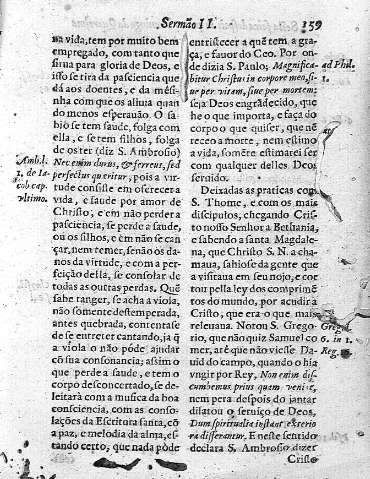 Sermão II.
159
na vida, tem por muito bem
empregado, com tanto que
sirua para gloria de Deos, e
isso se tira da pasciencia que
dá aos doentes, e da mési-
nha com que os aliuia quan
do menos esperauão. O sa-
bio se tem saude, folga com
ella, e se tem filhos, folga
de os ter (diz S. Ambrosio)
Nec enim durus, & ferreus, sed
perfectus queritur; pois a vir-
tude consiste em oferecer a
vida, e saude por amor de
Christo, e em não perder a
pasciencia, se perde a saude,
ou os filhos, e em não se can
çar, nem temer, senão os da-
nos da virtude, e com a per-
feição della, se consolar de
todas as outras perdas. Quē
sabe tanger, se acha a viola,
não somente destemperada,
antes quebrada, contentase
de se entreter cantando, ja q̃
a viola o não pòde ajudar
có sua consonancia; assim o
que perde a saude, e tem o
corpo desconcertado, se de-
leitarà com a musica da boa
consciencia, com as conso-
lações da Escritura santa, cō
a paz, e melodia da alma, es-
tando certo, que nada pòde
Amb. l.
1. de Ia-
cob cap.
vltimo.
entristecer a quē tem a gra-
ça, e fauor do Ceo. Por on-
de dizia S. Paulo; Magnifica-
bitur Christus in corpore meo, si-
ue per vitam, siue per mortem:
seja Deos engrãdecido, que
he o que importa, e faça do
corpo o que quiser, que nē
receo a morte, nem estimo
a vida, somēte estimarei ser
com qualquer delles Deos
seruido.
Deixadas as praticas com
S. Thome, e com os mais
discipulos, chegando Cris-
to nosso Senhor a Bethania,
e sabendo a santa Magdale-
na, que Christo S. N. a cha-
maua, sahiose da gente que
a visitaua em seu nojo, e cor
tou pella ley dos comprimē
tos do mundo, por acudir a
Cristo, que era o que mais
releuaua. Notou S. Grego-
rio, que não quiz Samuel co
mer, atè que não viesse Da-
uid do campo, quando o hia
vngir por Rey, Non enim dis
cumbemus prius quam veniat,
nem pera despois do jantar
dilatou o seruiço de Deos,
Dum spiritualia instant exterio
ra differantur. E neste sentido
declara S. Ambrosio dizer
Cristo
ad Phil.
1.
Greg. l.
6. in 1.
Reg.